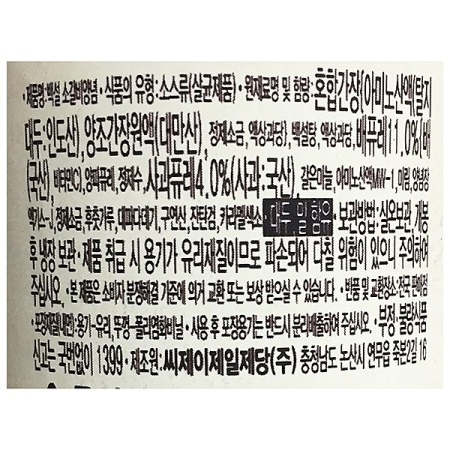 ·제품명:백설 소갈비양념 ·식품의 유형:소스류(살균제품) ·원재료명 및 함량:혼합간장(아미노산액(탈지
대두:인도산), 양조간장원액(대만산), 정제소금, 액상과당), 백설탕, 액상과당, 배퓨레11.0%(배:
국산), 비타민C), 양파퓨레, 정제수, 사과퓨레4.0%(사과:국산), 갈은마늘, 아미노산액MW-1, 미림, 양념장
엑기스-C, 정제소금, 후춧가루, 대파다대기, 구연산, 잔탄검, 카라멜색소 ·대두, 밀 함유 ·보관방법:실온보관, 개봉
후 냉장 보관 ·제품 취급 시 용기가 유리재질이므로 파손되어 다칠 위험이 있으니 주의하여
주십시오. ·본 제품은 소비자 분쟁해결 기준에 의거 교환 또는 보상 받으실 수 있습니다. ·반품 및 교환장소:전국 판매점
·포장재질(내면):용기-유리, 뚜껑-폴리염화비닐 ·사용 후 포장용기는 반드시 분리배출하여 주십시오. ·부정·불량식품
신고는 국번없이 1399 ·제조원:씨제이제일제당(주) 충청남도 논산시 연무읍 죽본2길 16